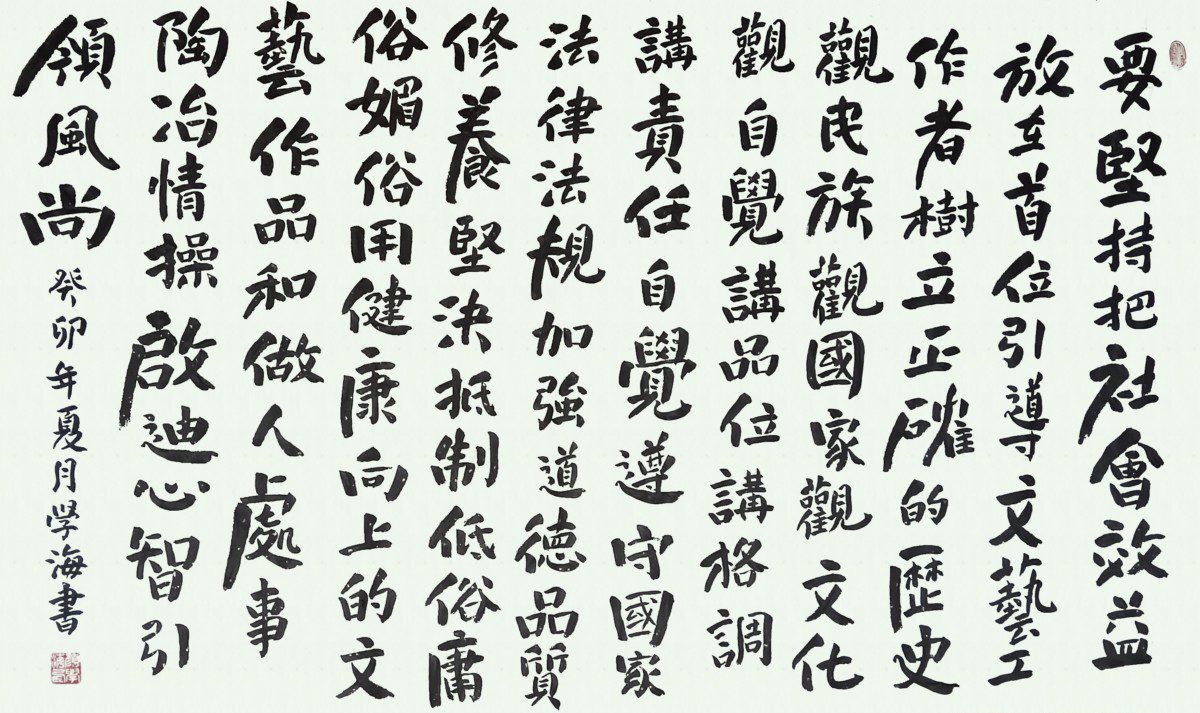 要堅持把社會效益
放在首位引導文藝工
作者樹立正確的歷史
觀民族觀國家觀文化
觀自覺講品位講格調
講責任自覺遵守國家
法律法規加強道德品質
修養堅決抵制低俗庸
俗媚俗用健康向上的文
藝作品和做人處事
陶冶情操啟迪心智引
領風尚
癸卯年夏月學海書